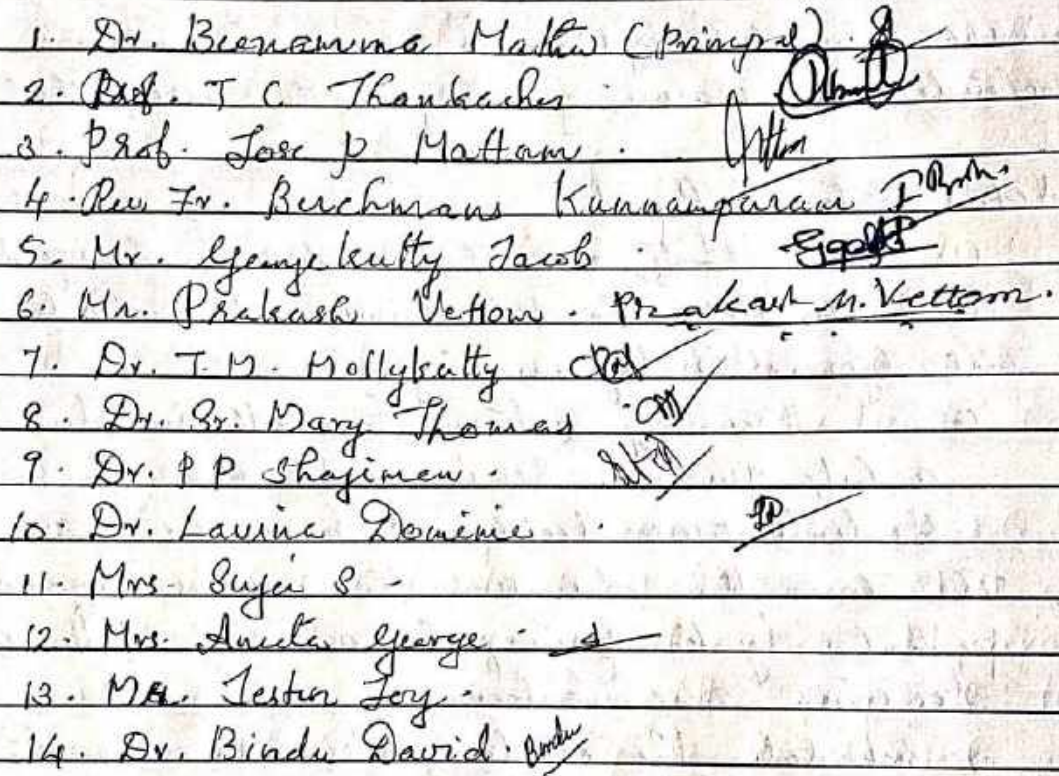 1. Dr. Beenamma Mathew (Principal).
2. Prof. T C Thankachen
3. Prof. Jose P Mattam.
4. Rev. Fr. Berchmans Kunnamparam
5. Mr. Georgekutty Jacob
6. Mr. Prakash Vettom. Prakash M. Vettom.
7. Dr. T.M. Mollykutty
8. Dr. Sr. Mary Thomas
9. Dr. P P Shajimon.
10. Dr. Lavina Dominic
11. Mrs. Suja S -
12. Mrs. Aneeta George.
13. Mr. Jestin Joy.
14. Dr. Bindu David. Bindu